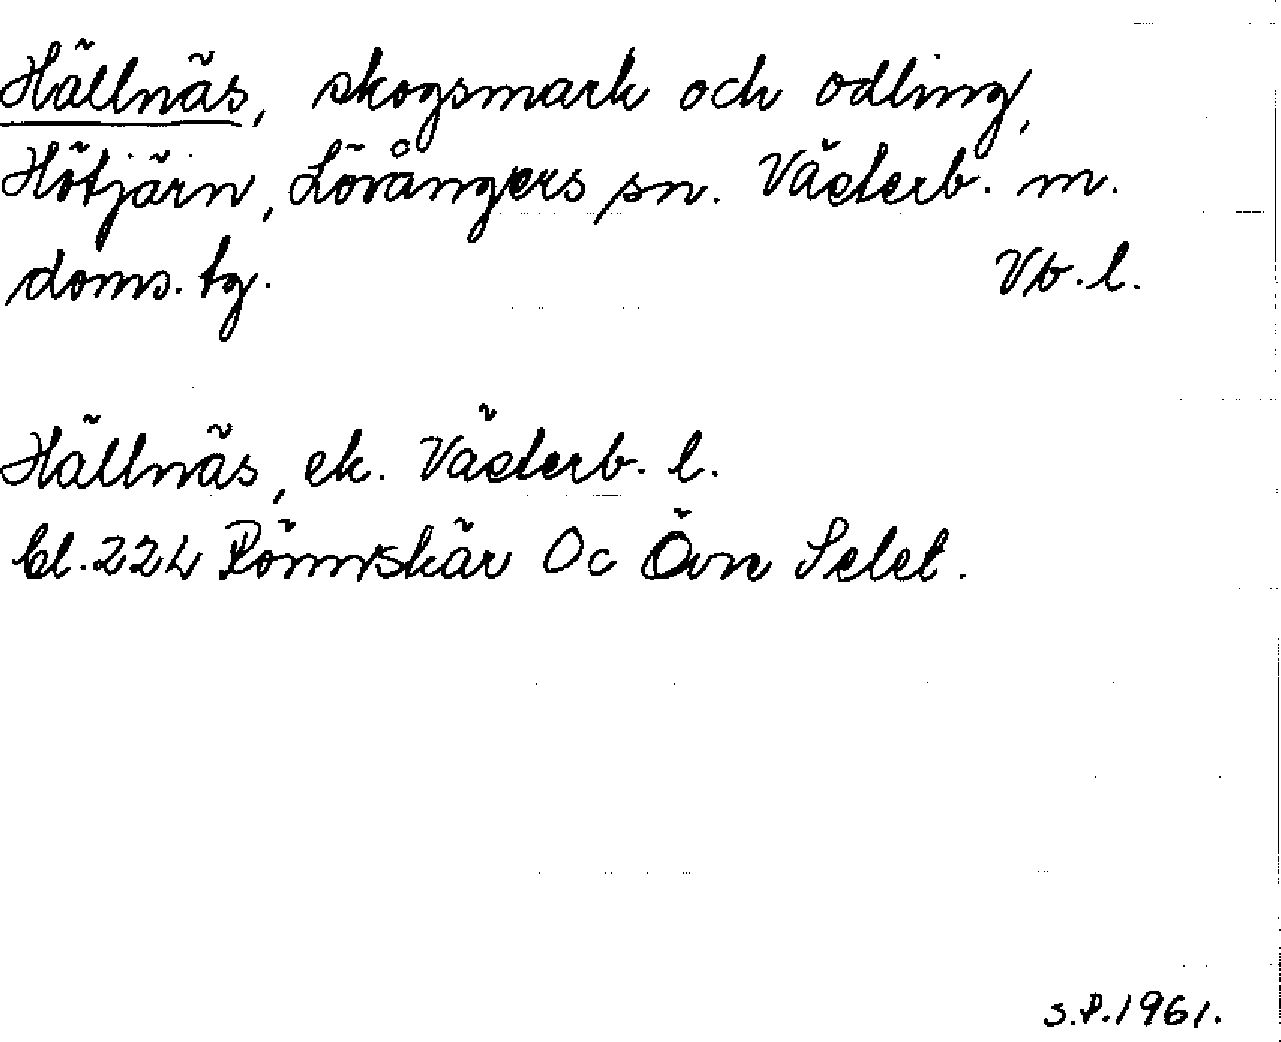 Hällnäs, skogsmark och odling,
Hötjärn, Lövångers sn. Västerb. m.
doms. tg. Vb. l.
Hällnäs, ek. Västerb. l.
bl. 22L Rönnskär Oc Övre Selet.
S.P. 1961.